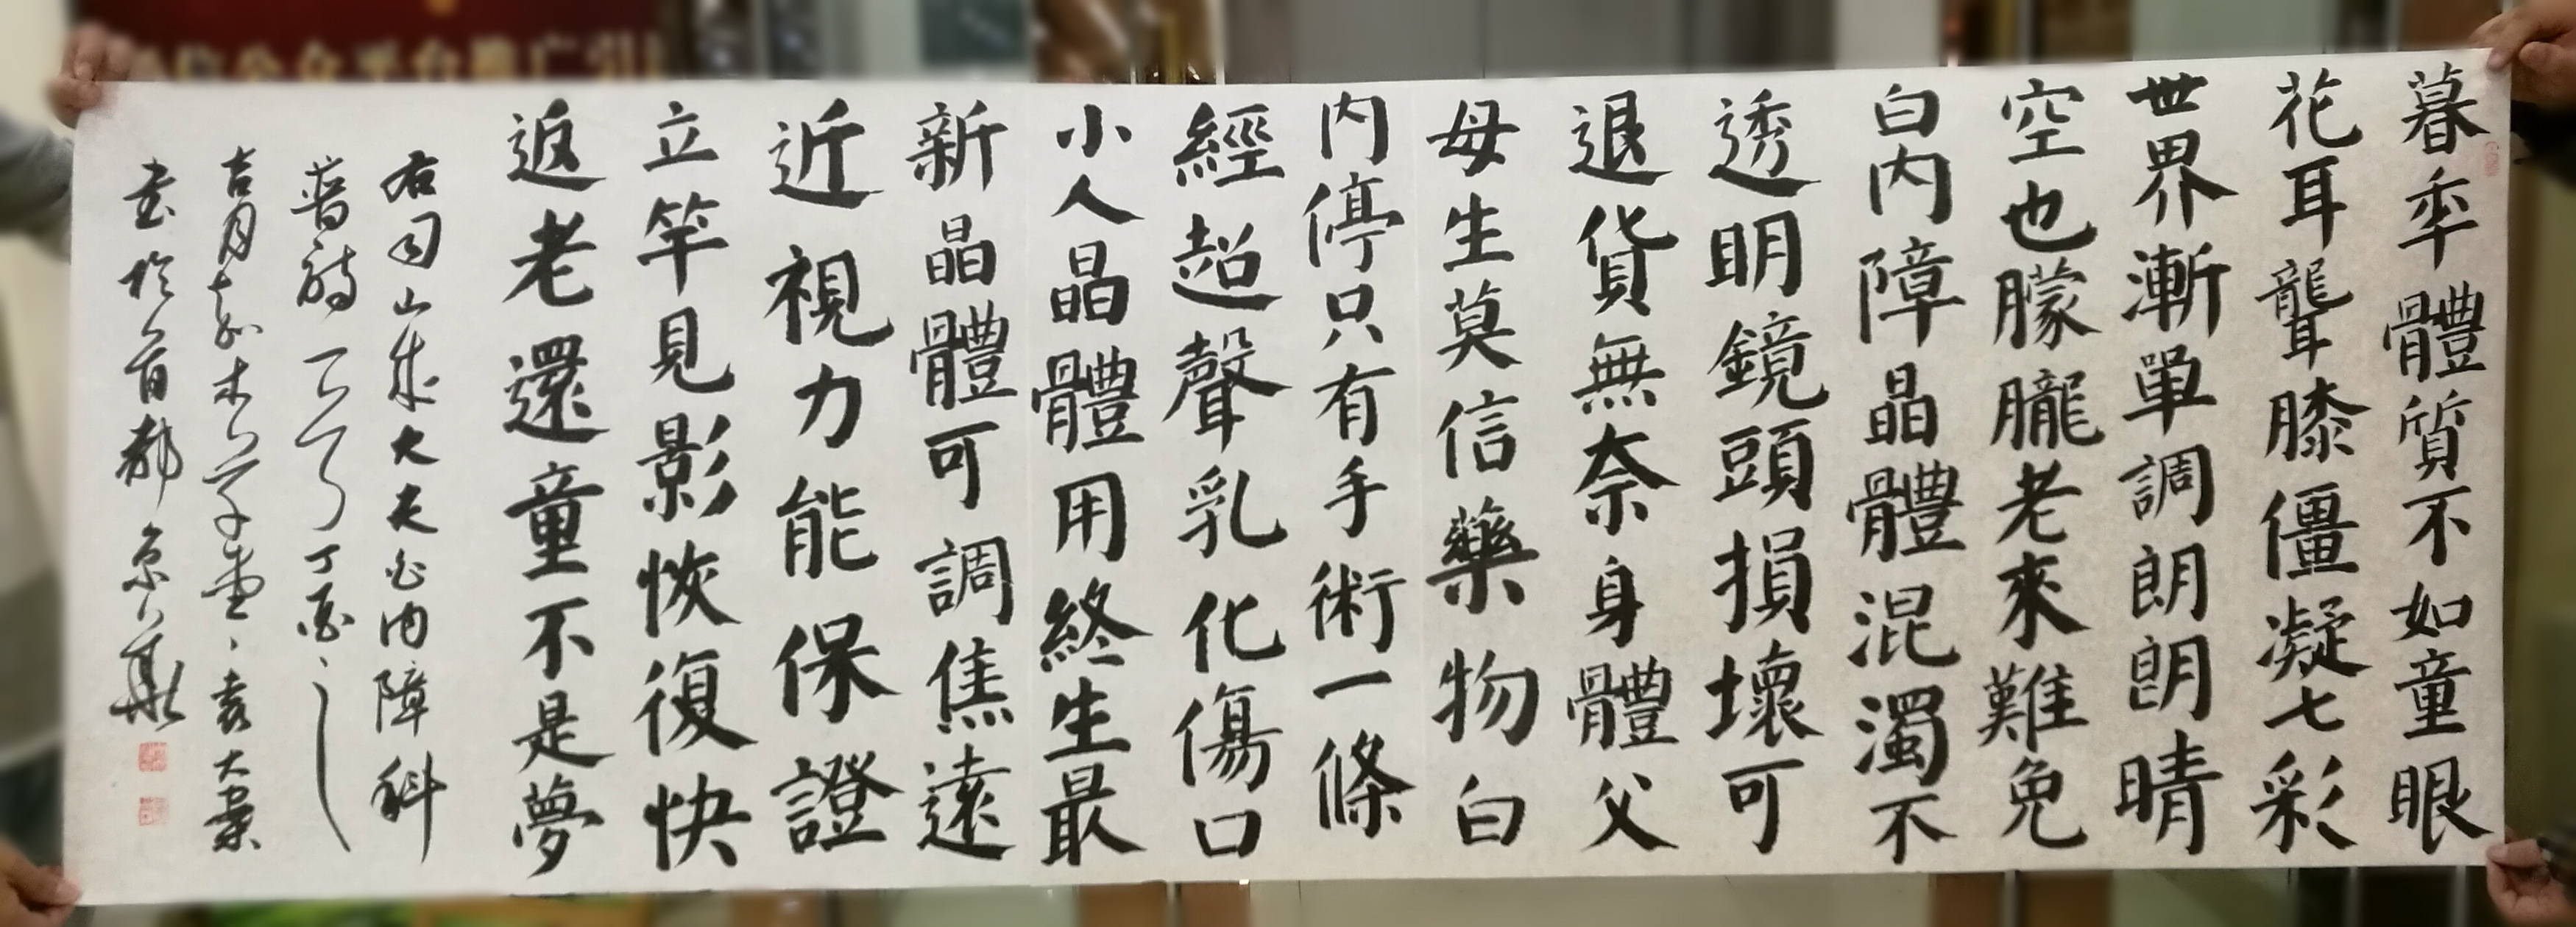 暮年體質不如童眼
花耳聾膝僵凝七彩
世界漸單調朗朗晴
空也朦朧老來難免
白内障晶體混濁不
透明鏡頭損壞可
退貨無奈身體父
母生莫信藥物白
内停只有手術一條
經超聲乳化傷口
小人晶體用終生最
新晶體可調焦遠
近視力能保證
立竿見影恢復快
返老還童不是夢
右司山成大夫白内障科
普詩一首丁酉
吉月
書於首都京
公众平台推广引